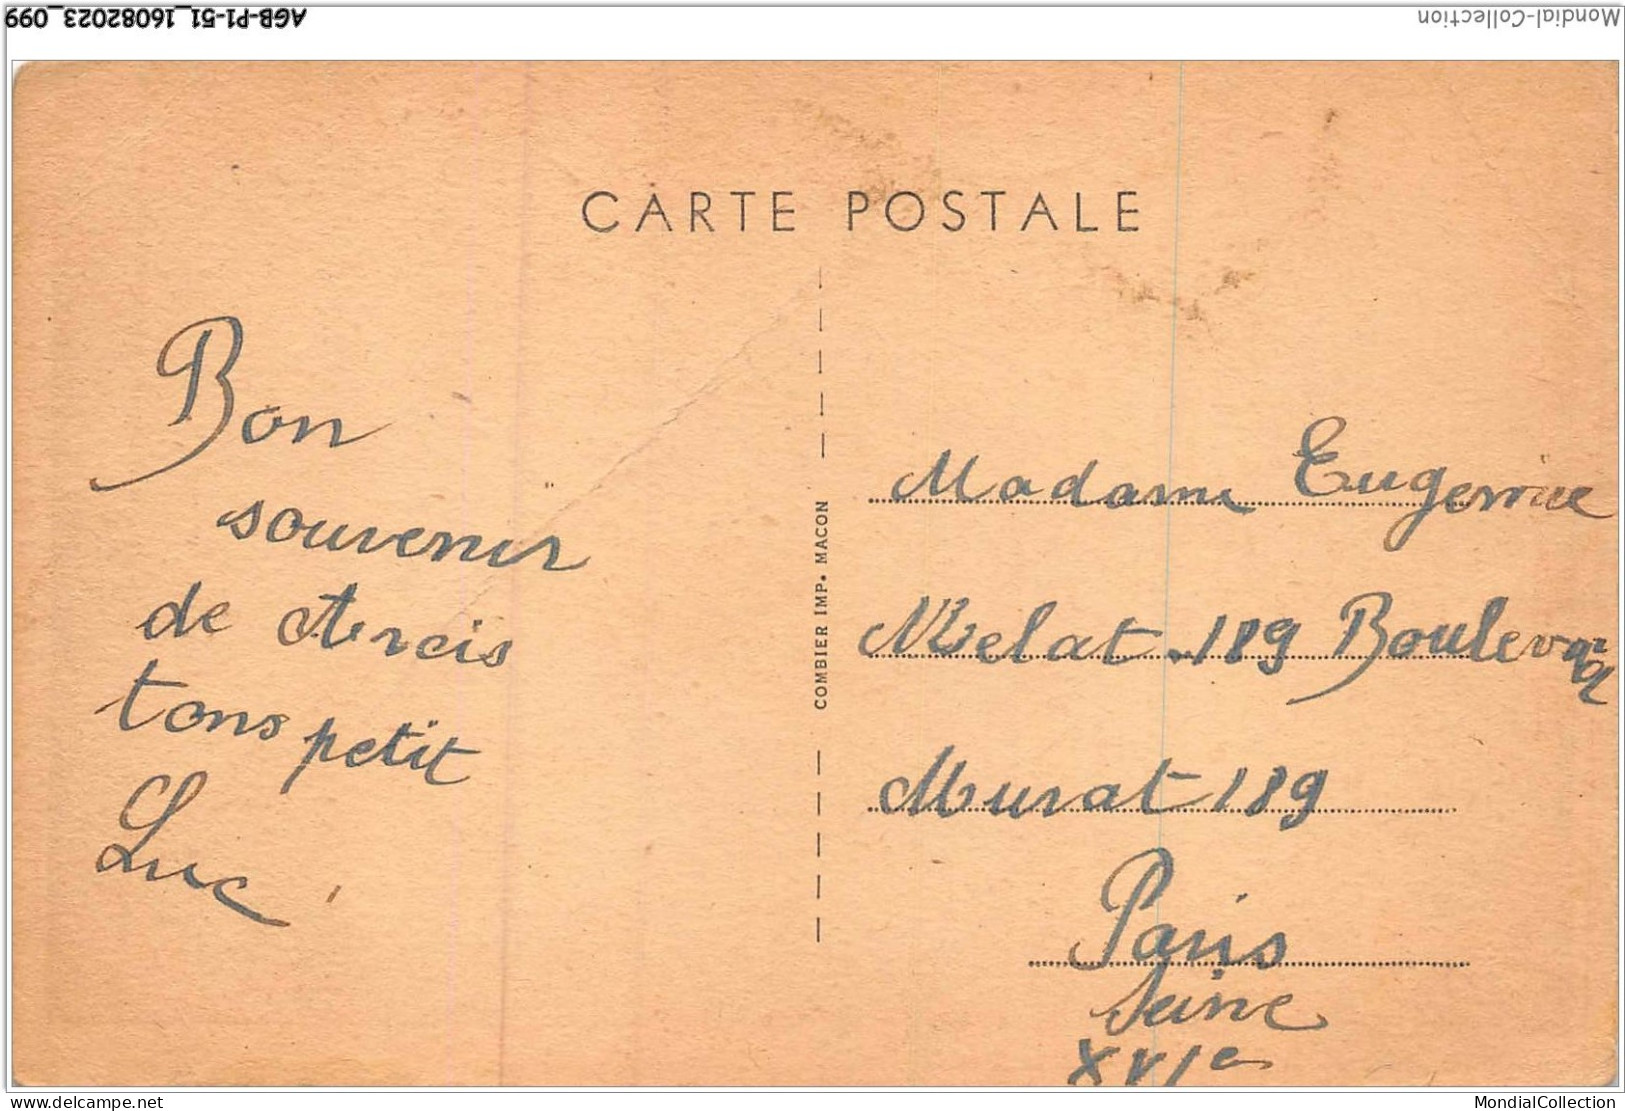 AGB-P1-51_16082023_099
Mondial-Collection
CARTE POSTALE
Bon
souvenir
de Arcis
tons petit
Luc
COMBIER IMP. MACON
Madame Eugenie
Melat. 189 Boulevard
Murat 189
Paris
Seine
XVIe
delcampe.net
MondialCollection